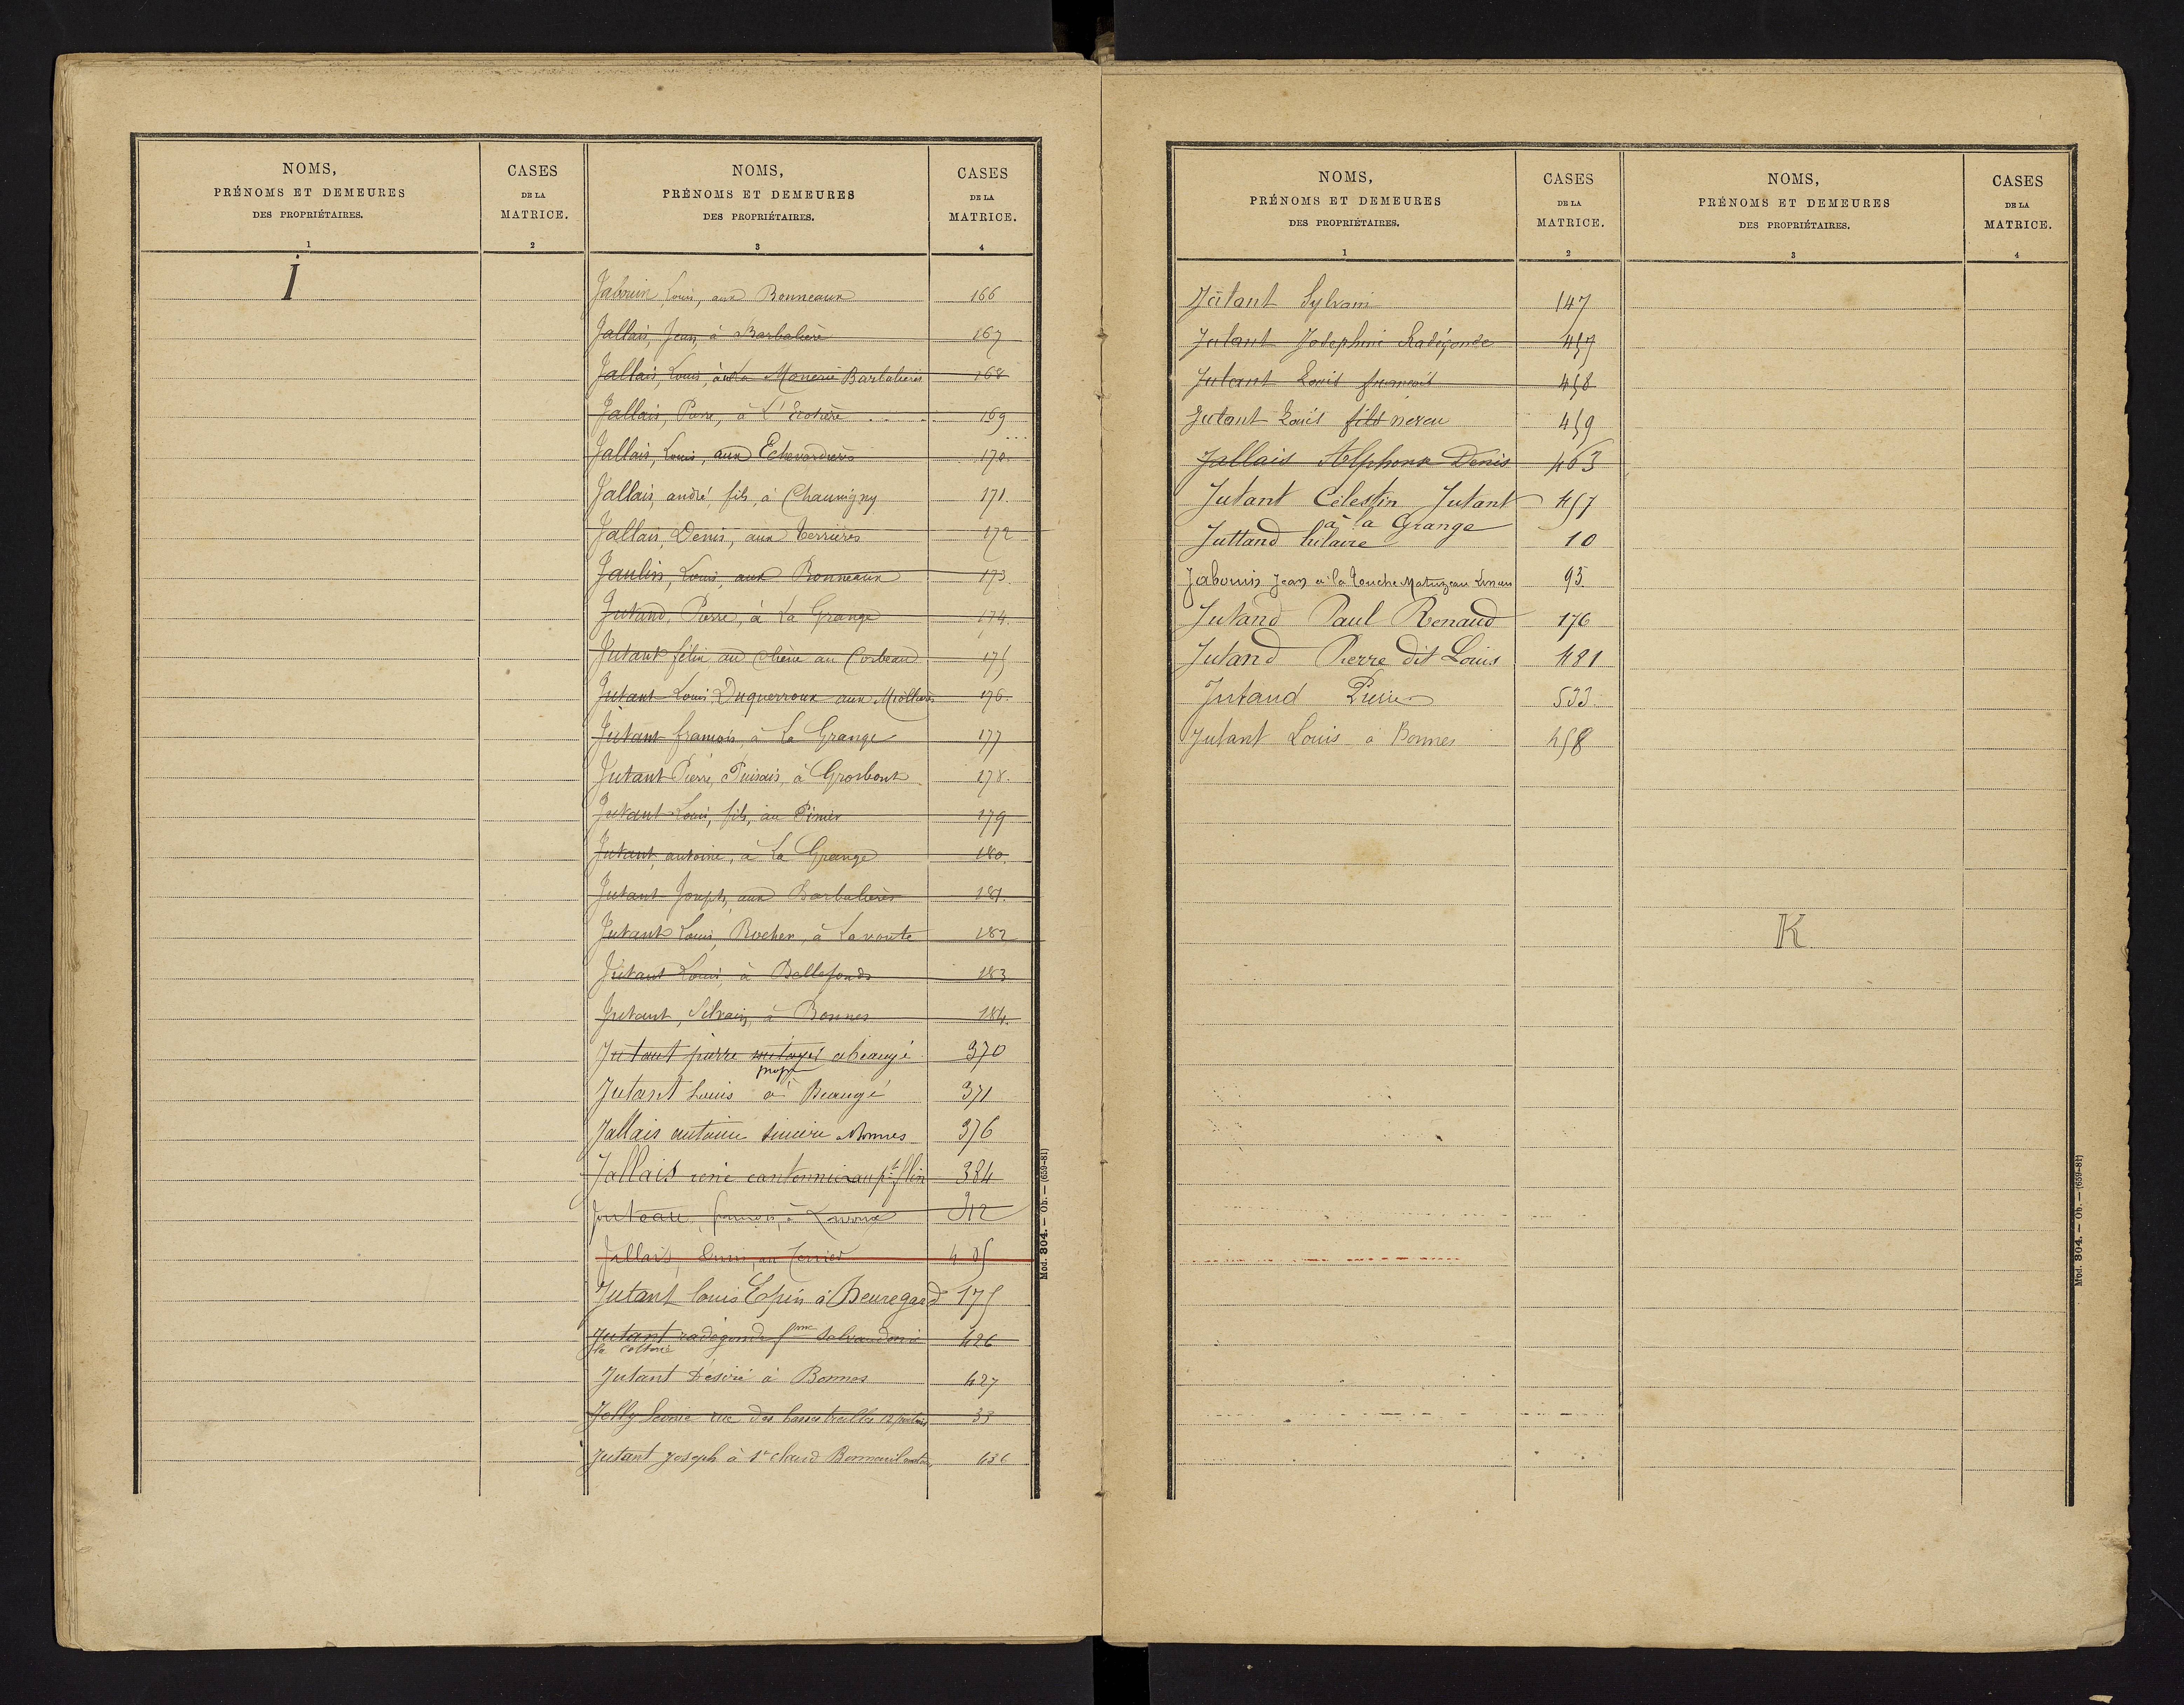 NOMS,
PRÉNOMS ET DEMEURES
DES PROPRIÉTAIRES.
1
CASES
DE LA
MATRICE.
2
NOMS,
PRÉNOMS ET DEMEURES
DES PROPRIÉTAIRES.
3
CASES
DE LA
MATRICE.
4
J
Jabouin Louis, aux Bonneaux 166
Jallais, Jean, à Barbalière 167
Jallais, Louis, à la Monerie Barbalieres 168
Jallais, Pierre, à L' 169
Jallais, Louis, aux 170.
Jallais, andré, fils, à Chauvigny 171.
Jallais, Denis, aux Terriers 172
Jaulin, Louis, aux Bonneaux 173.
Jutand, Pierre, à La Grange 174.
Jutant félix au chêne au Corbeau 175
Jutant Louis Duquerroux aux 176.
Jutant françois, à La Grange 177
Jutant Pierre, Puisais, à Grosbout 178.
Jutant Louis, fils, au Pinier 179
Jutant, antoine, à La Grange 180.
Jutant Joseph, aux Barbalières 181.
Jutant Louis, Rocher, à Lavoute 182
Jutant Louis, à Bellefonds 183
Jutant, Silvain, à Bonnes 184.
Jutant pierre abeaugé 370
prop
Jutant Louis à Beaugé 371
Jallais antoine Bonnes 376
Jallais rené cantonnier au pt flin 384
Juteau, françois, à Lavoux 312
Jallais, au Terrier 405
Jutant louis Espin à Beuregard 175
Jutant radegonde fme 426
la
Jutant Désiré à Bonnes 427
Jolly Leonie rue des basses treilles 12 poitiers 33
Jutant Joseph à St claud Bonneuil matours 436
Mod. 804. — Ob. — (659-81)
NOMS,
PRÉNOMS ET DEMEURES
DES PROPRIÉTAIRES.
1
CASES
DE LA
MATRICE.
2
NOMS,
PRÉNOMS ET DEMEURES
DES PROPRIÉTAIRES.
3
CASES
DE LA
MATRICE.
4
Jutant Sylvain 147
Jutant Josephine Radégonde 457
Jutant Louis françois 458
Jutant Louis fils neveu 459
Jallais Alphonse Denis 463
Jutant Célestin Jutant 457
à la Grange
Juttand hilaire 10
Jabouin Jean à la Touche Matuzeau 93.
Jutand Paul Renaud 176
Jutand Pierre dit Louis 481
Jutaud Pierre 533.
Jutant Louis à Bonnes 458
K
Mod. 804. — Ob. — (659-81)